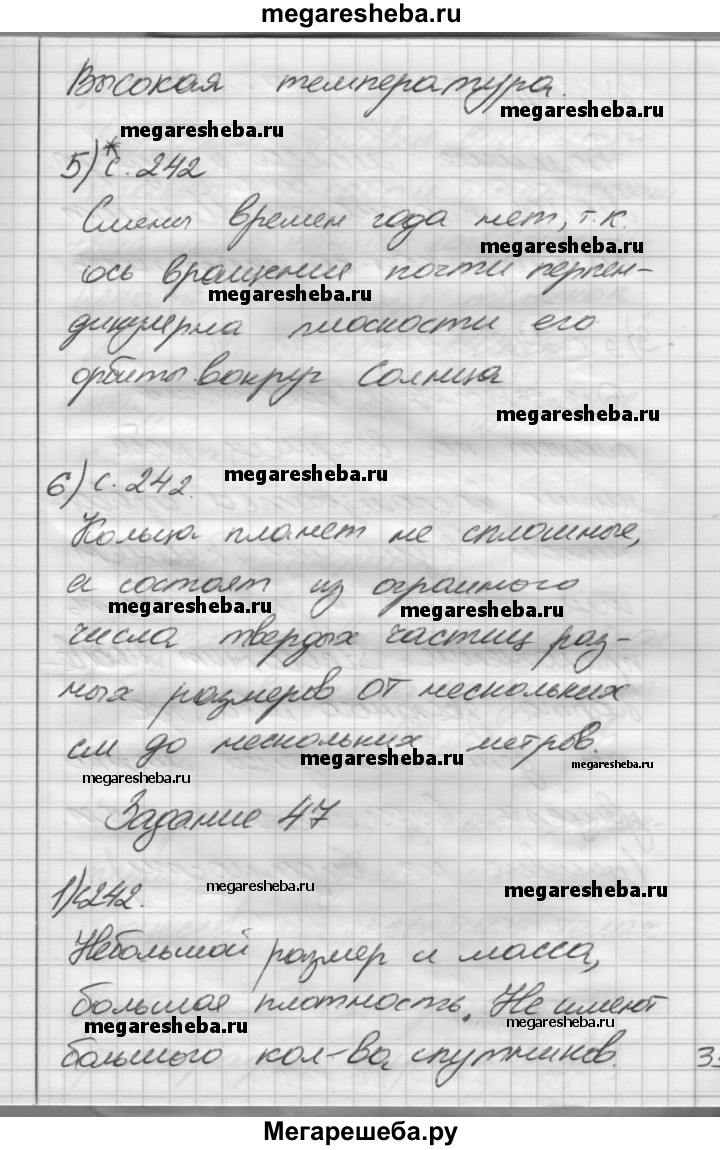 megaresheba.ru
Высокая температура.
megaresheba.ru
megaresheba.ru
5)* с. 242
Смены времен года нет, т.к.
megaresheba.ru
ось вращения почти перпен-
megaresheba.ru
дикулярна плоскости его
орбиты вокруг Солнца
megaresheba.ru
6) с. 242.
megaresheba.ru
Кольца планет не сплошные,
а состоят из огромного
megaresheba.ru
megaresheba.ru
числа твердых частиц раз-
ных размеров от нескольких
см до нескольких метров.
megaresheba.ru
megaresheba.ru
megaresheba.ru
Задание 47
1) с242.
megaresheba.ru
megaresheba.ru
Небольшой размер и масса,
большая плотность. Не имеют
megaresheba.ru
megaresheba.ru
большого кол-ва спутников.
Мегарешеба.ру